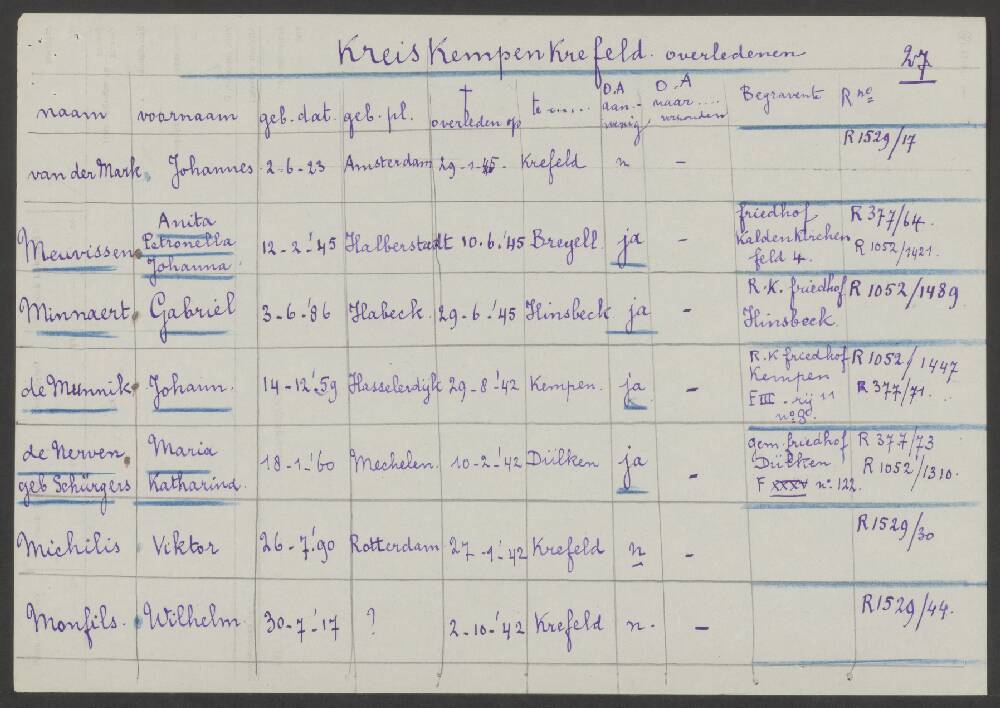 Kreis Kempen Krefeld. overledenen 27
naam voornaam geb. dat. geb. pl. † overleden op te ..... D.A aan- wezig D.A naar .... verzonden Begraven te R no
van der Mark, Johannes 2-6-23 Amsterdam 29-1-45. Krefeld n - R1529/17
Meuvissen. Anita Petronella Johanna 12-2-'45 Halberstadt 10-6-'45 Breyell ja - friedhof Kaldenkirchen feld 4. R 377/64. R 1052/1421.
Minnaert. Gabriël 3-6-'86 Habeck. 29-6-'45 Hinsbeck ja - R.K. friedhof Hinsbeck R 1052/1489
de Munnik. Johann. 14-12-'59 Hasselerdijk 29-8-'42 Kempen. ja - R.K friedhof Kempen F III - rij 11 no 90. R 1052/1447 R 377/71.
de Nerven, geb Schürgers Maria Katharind. 18-1-'60 Mechelen. 10-2-'42 Dülken ja - gem. friedhof Dülken F XXXV no. 122. R 377/73 R 1052/1310.
Michilis Viktor 26-7-'90 Rotterdam 27-1-'42 Krefeld n - R1529/30
Monfils. Wilhelm. 30-7-'17 ? 2-10-'42 Krefeld n. - R1529/44.